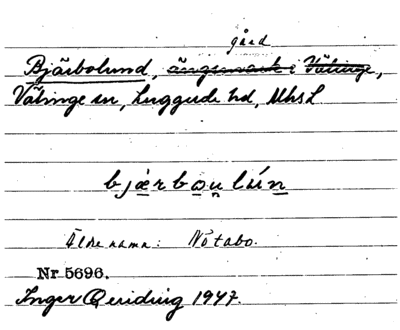 gård
Bjärbolund, ängsmark i Välinge,
Välinge sn, Luggude hd, Mhs L
bjærbou̯lún
Äldre namn: Nötabo.
Nr 5696.
Inger Quiding 1947.